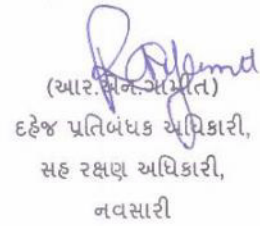 (આર.એન.ગામીત)
દહેજ પ્રતિબંધક અધિકારી,
સહ રક્ષણ અધિકારી,
નવસારી